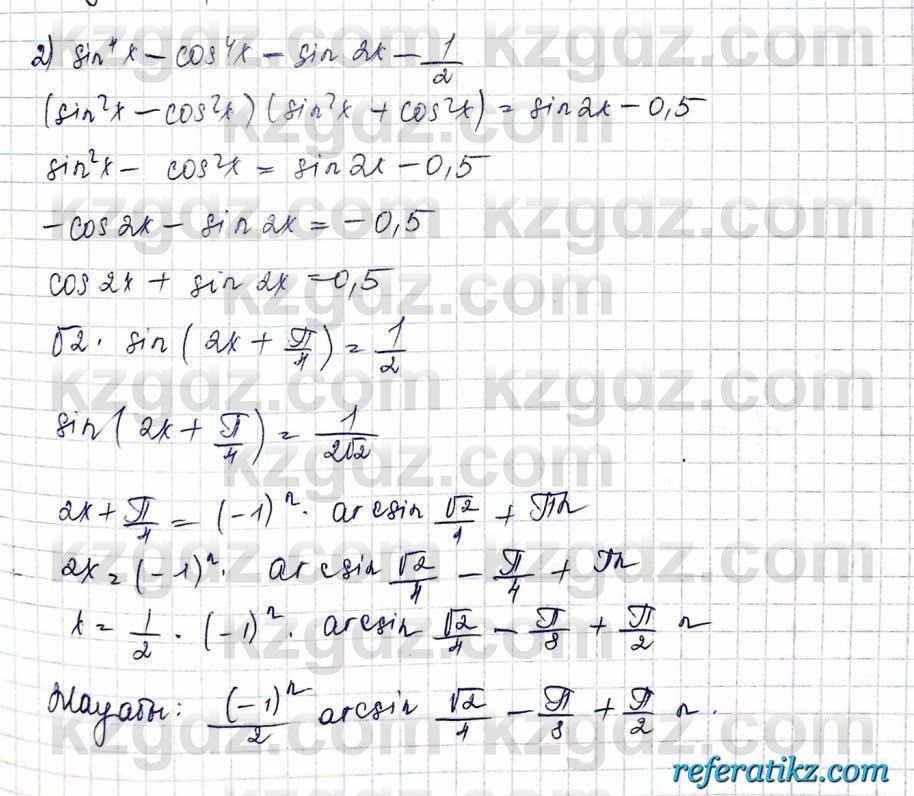 2) sin⁴x − cos⁴x − sin 2x − 1/2
(sin²x − cos²x) (sin²x + cos²x) = sin2x − 0,5
sin²x − cos²x = sin 2x − 0,5
−cos 2x − sin 2x = −0,5
cos 2x + sin 2x = 0,5
√2 · sin( 2x + π/4 ) = 1/2
sin( 2x + π/4 ) = 1/(2√2)
2x + π/4 = (−1)ⁿ · arcsin √2/4 + πn
2x = (−1)ⁿ · arcsin √2/4 − π/4 + πn
x = 1/2 · (−1)ⁿ · arcsin √2/4 − π/8 + π/2 n
Жауабы: (−1)ⁿ/2 arcsin √2/4 − π/8 + π/2 n.
kzgdz.com
referatikz.com